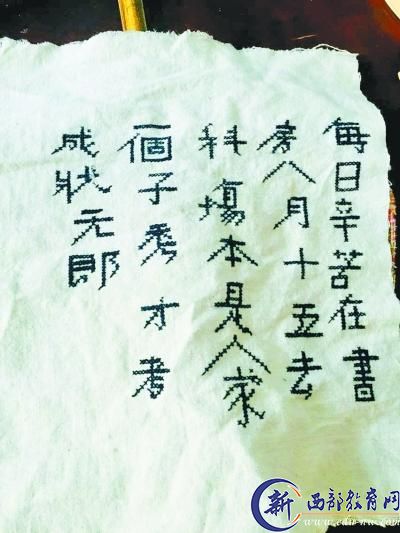 每日辛苦在書
房八月十五去
科場本是人家
一個子秀才考
成狀元郎
新 西部教育网